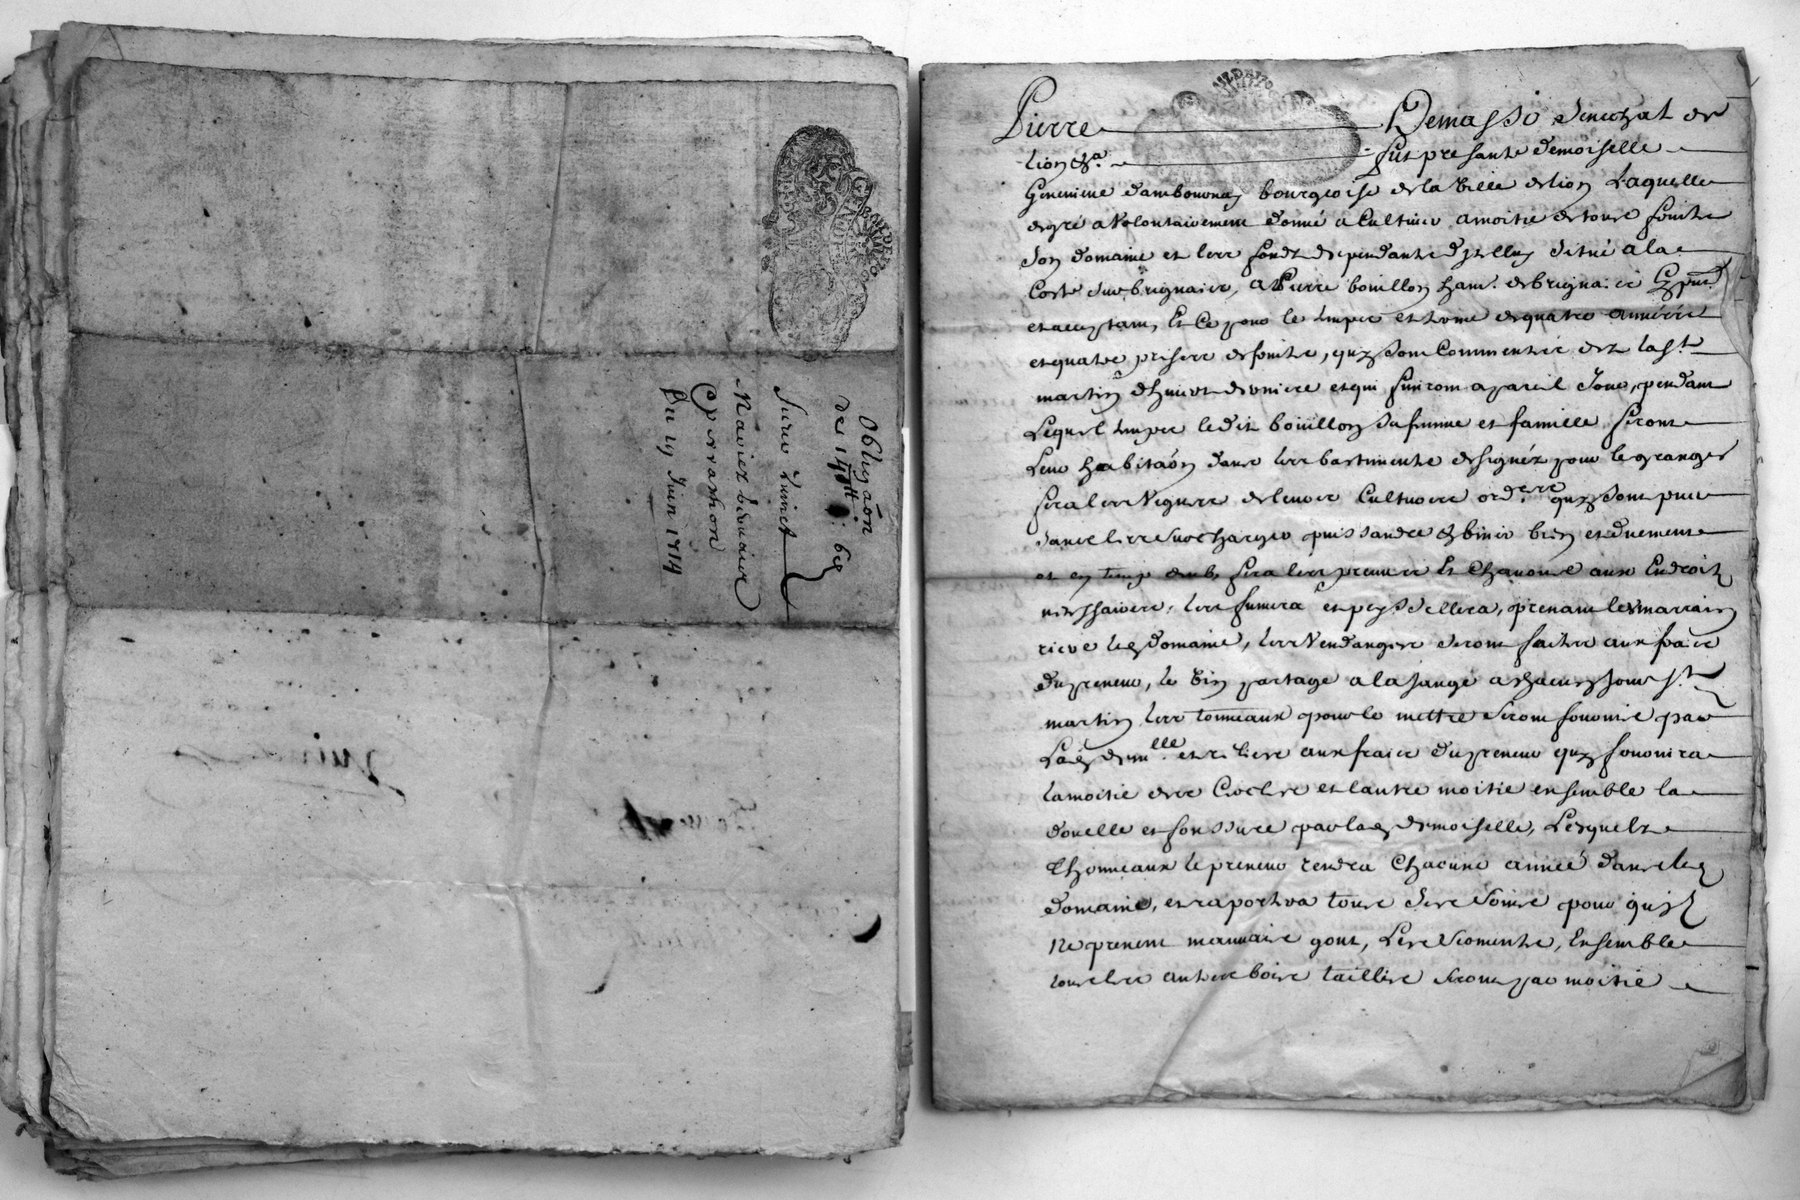 Obligaõn
de 147ₗₗ : 6s
Surer Guinet
Xavier
Du 19 Juin 1714
Pierre Demasso Senechal de
lion &a. fut presante demoiselle
Genevieve bourgeoise de la ville de lion Laquelle
de gré a volontairement donné a Cultiver a moitié de tous fruits
son domaine et les fonds dependants d'Jcelluy situé a la
Coste sur brignais, a Pierre bouillon hant. de brignais Cy pnt.
et acceptant, Et Ce pour le temps et terme de quatre années
et quatre prises de fruits, quy sont Commencées dez la St.
martin d'hiver derniere et qui finiront a pareil Jour, pendant
Lequel temps ledit boüillon sa femme et famille feront
Leur habitaõn dans les bastiments designéz pour le granger
fera les Vignes de leurs Cultures ordres quy sont
sans les surcharger puis sandre & biner bien et duement
et en temps deub, fera les preuves Et Chanons aux Endroits
necessaires, les fumera et peysselera, prenant les marrains
riere led domaine, les Vendanges seront faites aux frais
du preneur, le Vin partagé a la Jauge a chacun Jour St.
martin les tonneaux pour le mettre seront fournis par
Lad demlle. et reliers aux frais du preneur quy fournira
la moitié des Cercles et l'autre moitié ensemble la
douelle et fonssure par lad demoiselle, Lesquels
Thonneaux le preneur rendra Chacune année dans led
domaine, et raportera tous ses soins pour qu'jl
Ne prenent mauvais gout, Les Serments, Ensemble
tous les autres bois taillis seront par moitié